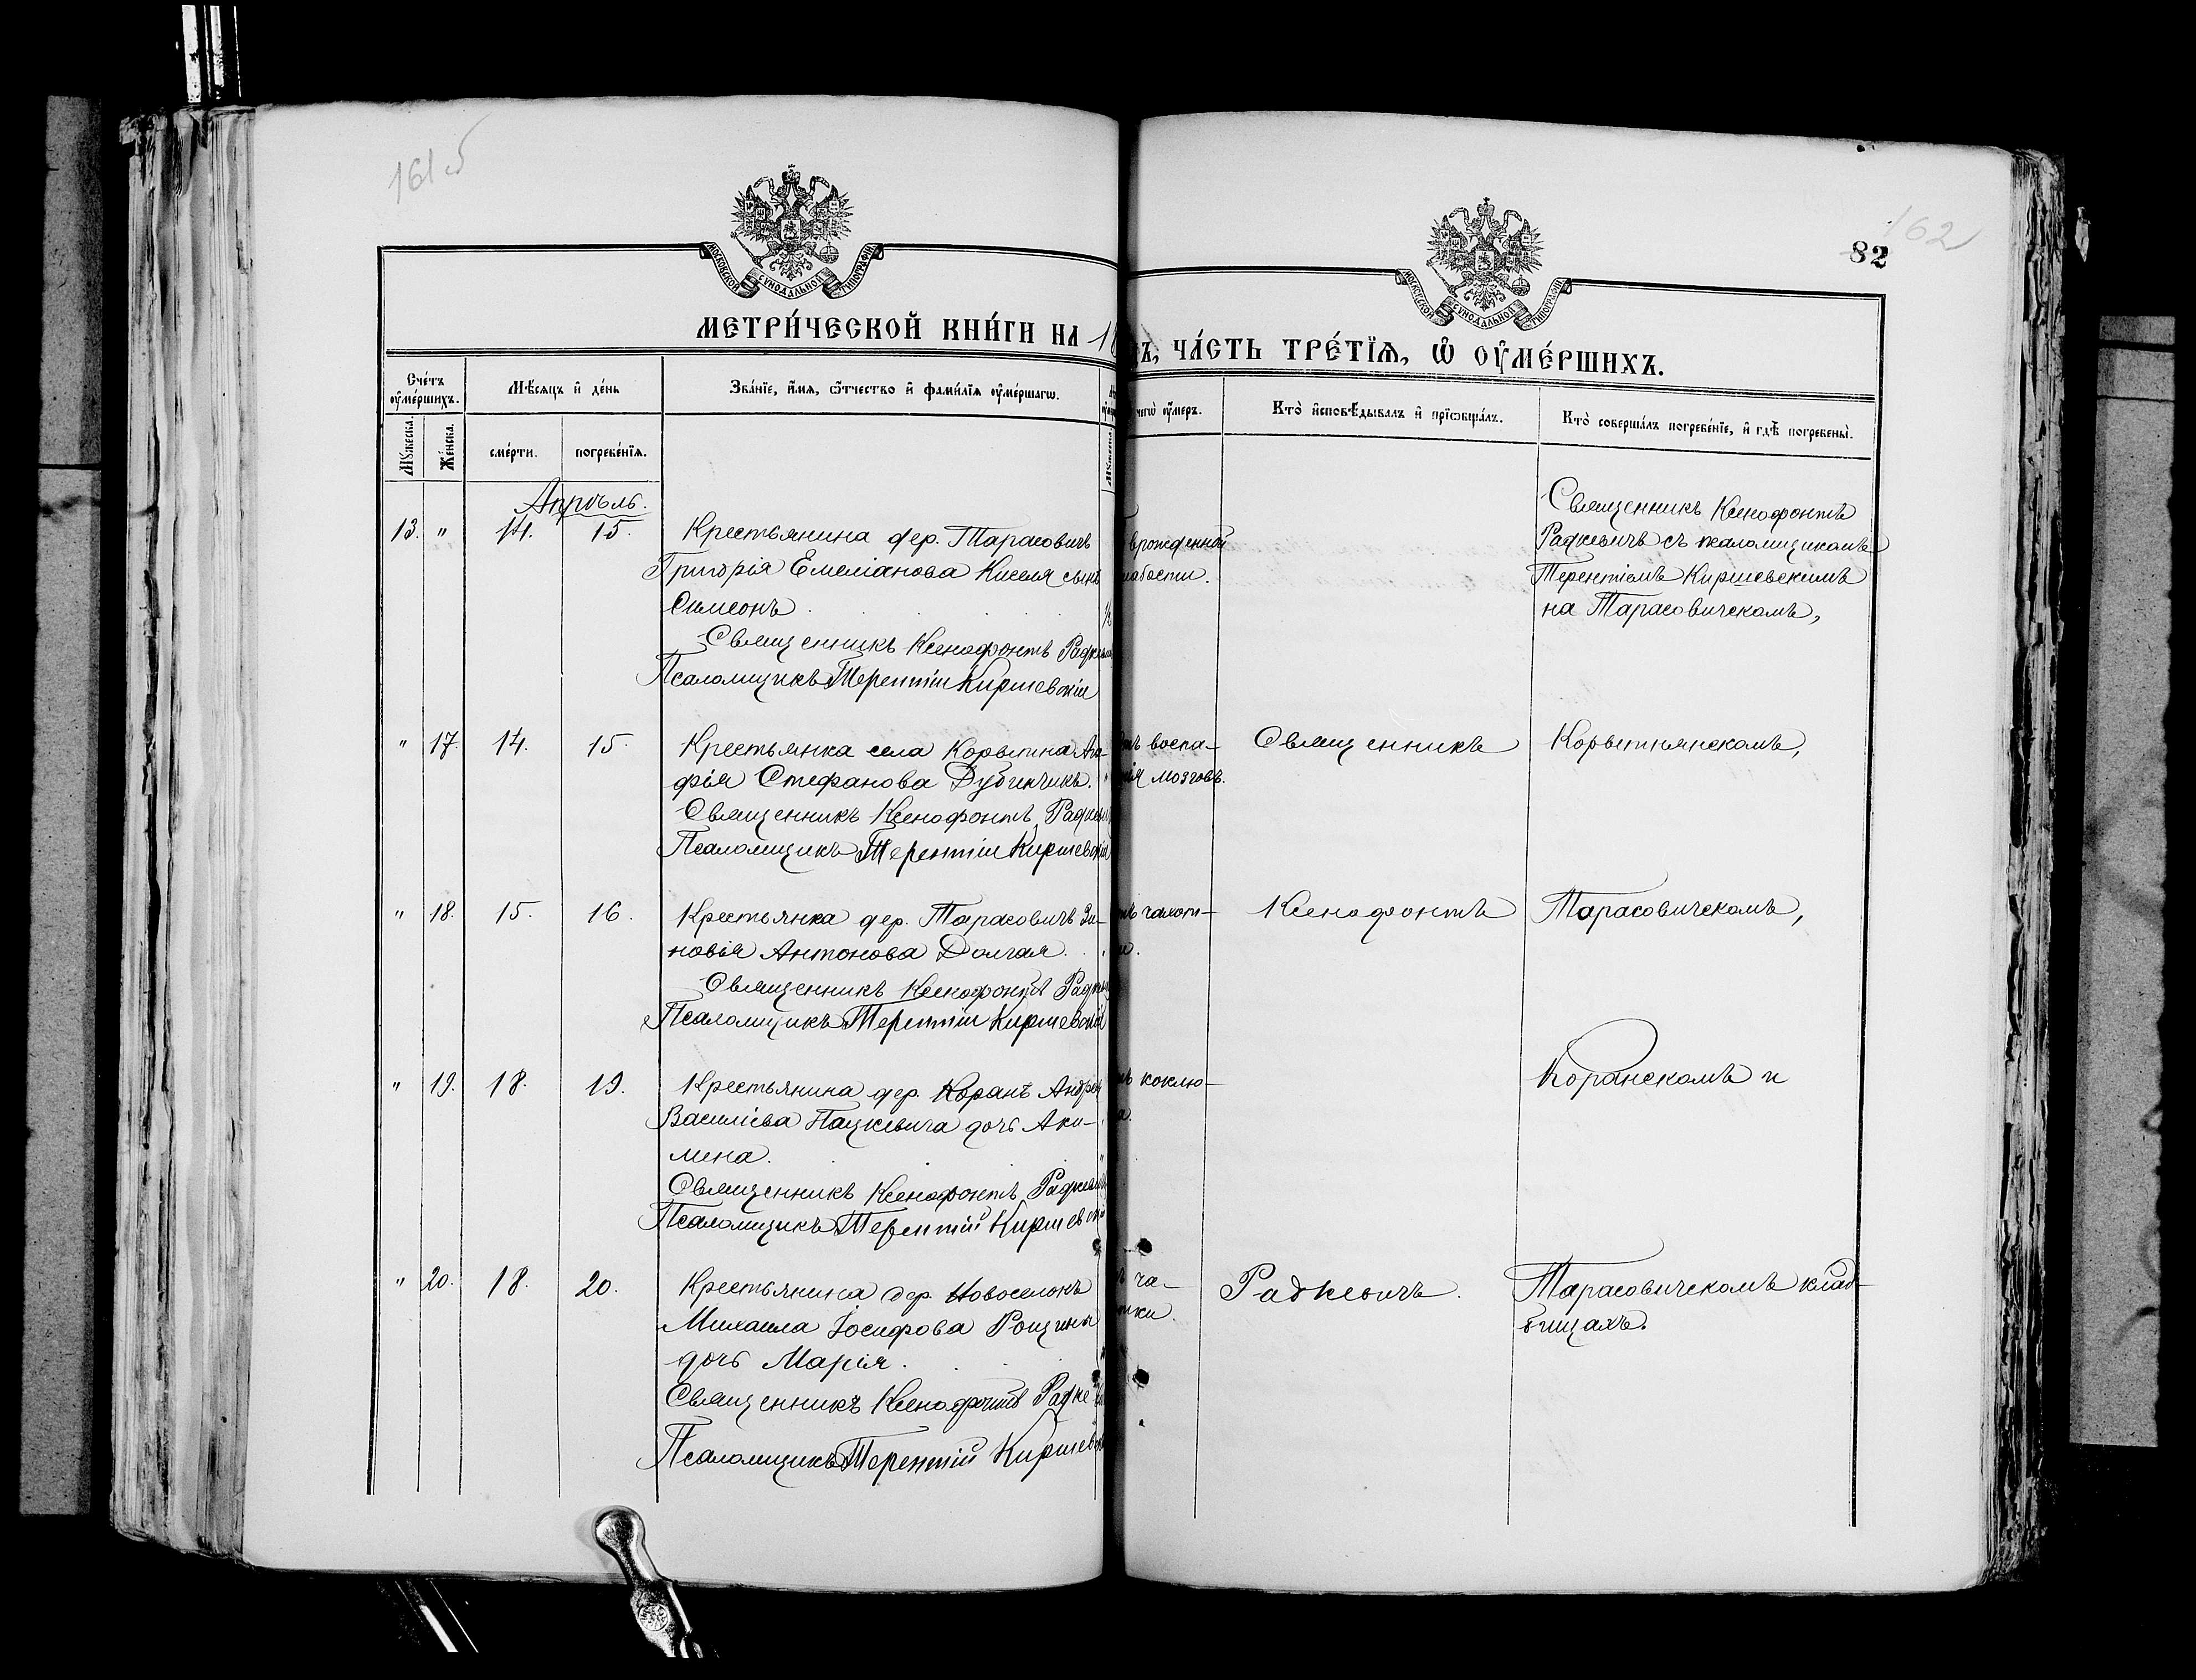 161 об
162
82
МОСКОВСКОЙ СѴНОДАЛЬНОЙ ТИПОГРАФІИ
МОСКОВСКОЙ СѴНОДАЛЬНОЙ ТИПОГРАФІИ
МЕТРИ́ЧЕСКОЙ КНИ́ГИ НА 18
Ъ, ЧА́СТЬ ТРЕ́ТЇѦ, Ѡ҆ ОУ҆МЕ́РШИХЪ.
Сче́тъ оу҆ме́ршихъ.
Мѣ́сяцъ и҆ де́нь
Зва́нїе, и҆́мя, ѻ҆́тчество и҆ фами́лїя оу҆ме́ршагѡ.
чегѡ̀ оу҆́меръ.
Кто̀ и҆сповѣ́дывалъ и҆ прїѡбща́лъ.
Кто̀ соверша́лъ погребе́нїе, и҆ гдѣ̀ погребены̀.
Мꙋ́жеска.
Же́нска.
сме́рти.
погребе́нїя.
Мꙋ́жеска.
Апрѣль.
13. " 14. 15. Крестьянина дер. Тарасовичъ
Григорія Емеліанова Киселя сынъ
Симеонъ
Священникъ Ксенофонтъ Радкевич
Псаломщикъ Терентій Киршевскій
врожденной
слабости.
Священникъ Ксенофонтъ
Радкевичъ съ псаломщикомъ
Терентіемъ Киршевскимъ
на Тарасовичскомъ,
" 17. 14. 15. Крестьянка села Корытна Ага-
фія Стефанова Дубинчикъ.
Священникъ Ксенофонтъ Радкевич
Псаломщикъ Терентій Киршевскій
воспа-
нія мозговъ.
Священникъ
Корытнянскомъ,
" 18. 15. 16. Крестьянка дер. Тарасовичъ Зи-
новія Антонова Долгая.
Священникъ Ксенофонтъ Радкевич
Псаломщикъ Терентій Киршевскій
чахот-
и.
Ксенофонтъ
Тарасовичскомъ,
" 19. 18. 19. Крестьянина дер. Коранъ Андрея
Василіева Пацкевича дочь Аки-
лина.
Священникъ Ксенофонтъ Радкевич
Псаломщикъ Терентій Киршевскій
коклю-
а.
Коранскомъ и
" 20. 18. 20. Крестьянина дер. Новоселокъ
Михаила Іосифова Рощины
дочь Марія.
Священникъ Ксенофонтъ Радкевич
Псаломщикъ Терентій Киршевскій
ча-
тки.
Радкевичъ.
Тарасовичскомъ клад-
бищахъ.